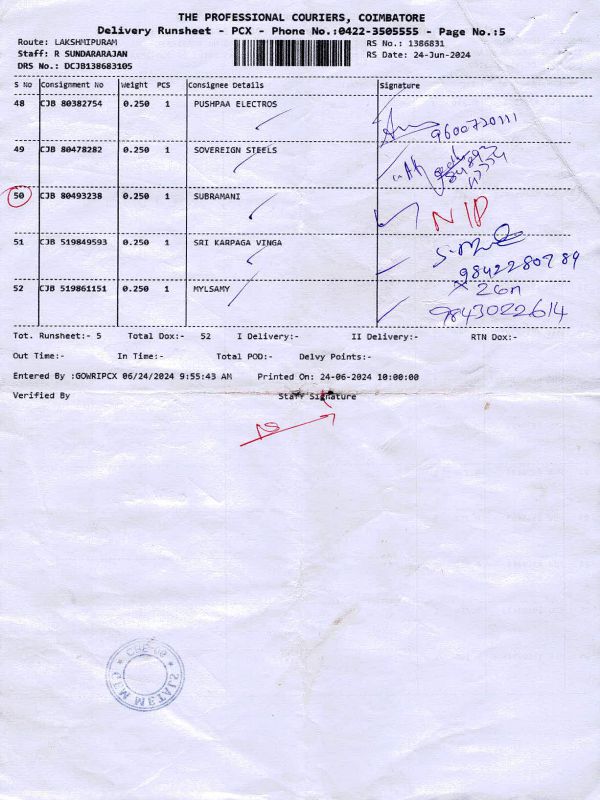 THE PROFESSIONAL COURIERS, COIMBATORE
Delivery Runsheet - PCX - Phone No.:0422-3505555 - Page No.:5
Route: LAKSHMIPURAM RS No.: 1386831
Staff: R SUNDARARAJAN RS Date: 24-Jun-2024
DRS No.: DCJB138683105
S No Consignment No Weight PCS Consignee Details Signature
48 CJB 80382754 0.250 1 PUSHPAA ELECTROS
9600720111
49 CJB 80478282 0.250 1 SOVEREIGN STEELS
50 CJB 80493238 0.250 1 SUBRAMANI
N/D
51 CJB 519849593 0.250 1 SRI KARPAGA VINGA
9842280789
52 CJB 519861151 0.250 1 MYLSAMY
9843022614
Tot. Runsheet:- 5 Total Dox:- 52 I Delivery:- II Delivery:- RTN Dox:-
Out Time:- In Time:- Total POD:- Delvy Points:-
Entered By :GOWRIPCX 06/24/2024 9:55:43 AM Printed On: 24-06-2024 10:00:00
Verified By Staff Signature